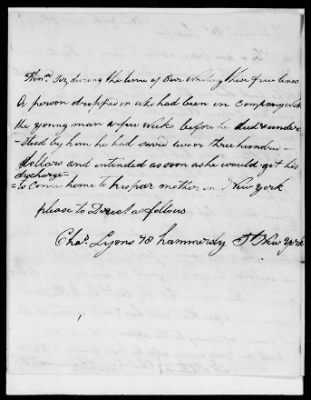 Hon'd Sir, during the time of Our writing these few lines
A person dropt in who had been in Company with
the young man a few weeks before he died & under
-stood by him he had saved two or three hundred -
dollars and intended as soon as he would get his
discharge =
= to Come home to his poor mother in New York
please to Direct as follows
Chas. Lyons 78 hammersly St New York